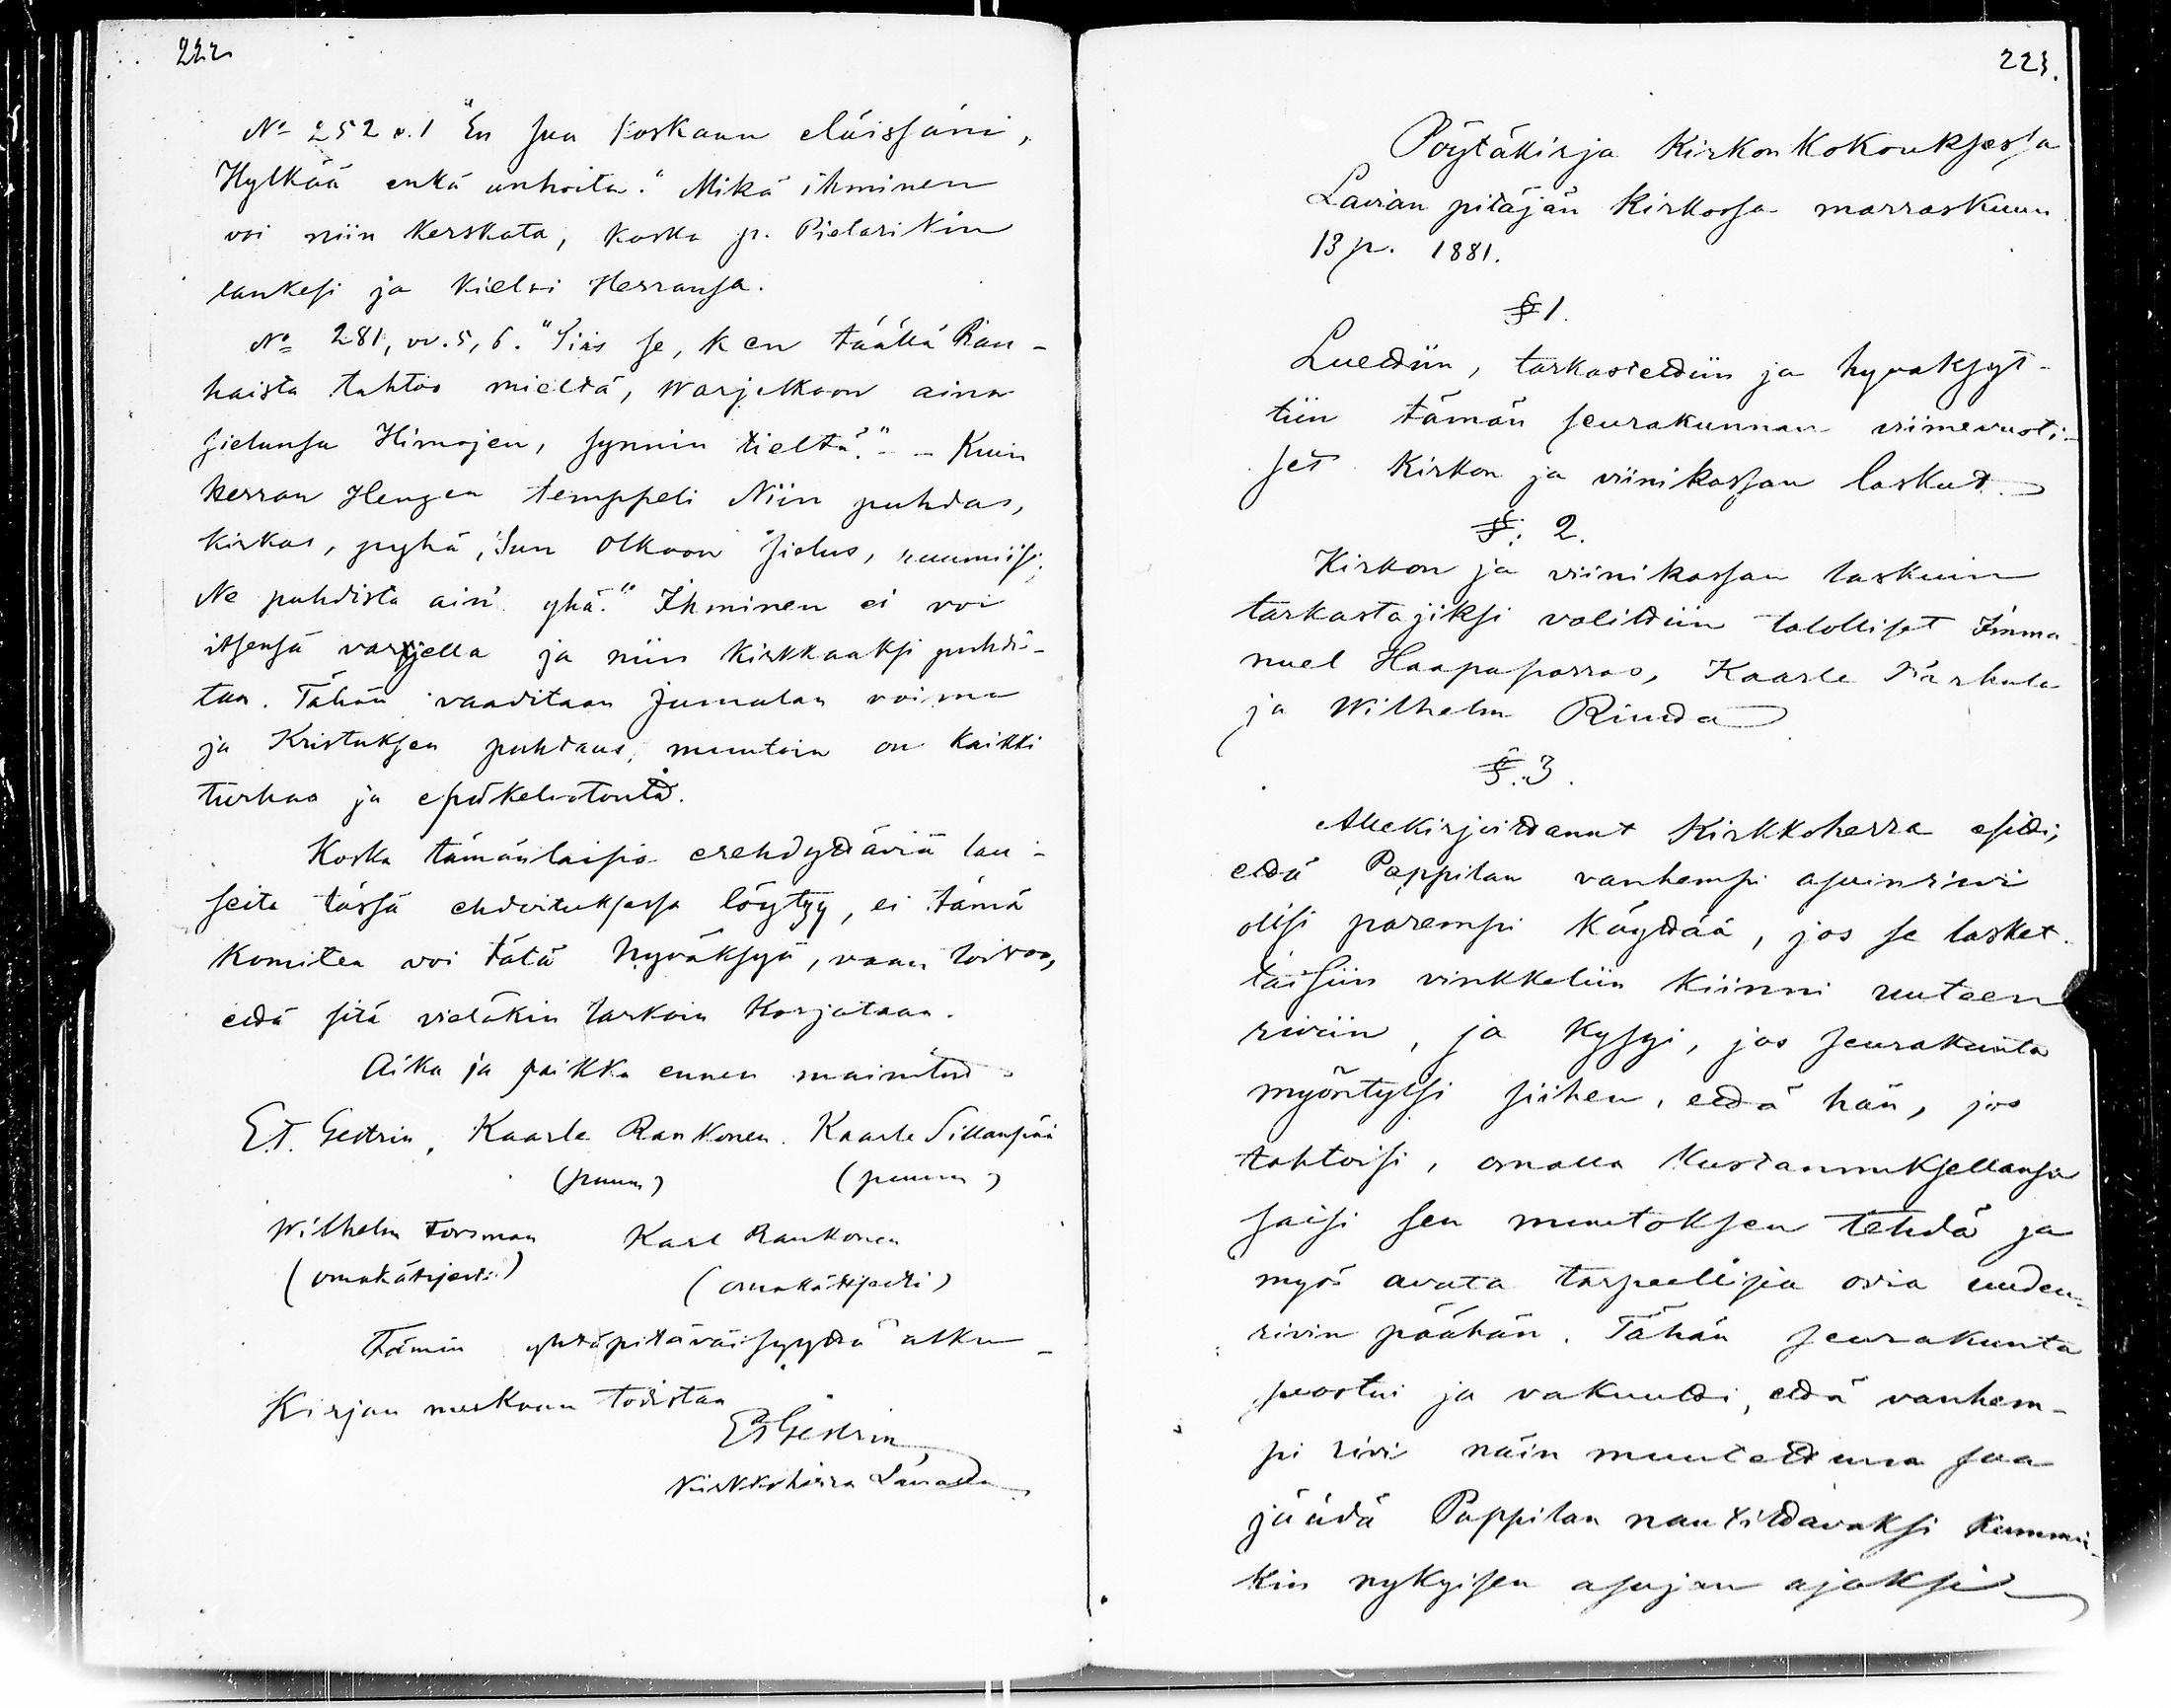 222
No 252 v. 1 "En sua koskaan eläissäni,
Hylkää enkä unhoita." Mikä ihminen
voi niin kerskata, koska p. Pietarikin
lankesi ja kielsi Herransa.
No 281, vv. 5, 6. "Siis se, ken täällä Rau-
haista tahtoo mieltä, Warjelkoon aina
sielunsa Himojen, synnin tieltä." - Kuin
kerran Hengen temppeli Niin puhdas,
kirkas, pyhä, Sun olkoon sielus, ruumiisi;
Ne puhdista ain' yhä." Ihminen ei voi
itsensä varjella ja niin kirkkaaksi puhdis-
taa. Tähän vaaditaan Jumalan voima
ja Kristuksen puhtaus, muutoin on kaikki
turhaa ja epäkelvotonta.
Koska tämänlaisia erehdyttäviä lau-
seita tässä ehdoituksessa löytyy, ei tämä
Komitea voi tätä hyväksyä, vaan toivoo,
että sitä vieläkin tarkoin korjataan.
Aika ja paikka ennen mainitut
E.T. Gestrin, Kaarle Rankonen. Kaarle Sillanpää
(puum) (puum)
Wilhelm Forsman Karl Rankonen
(omakätisesti) (omakätisesti)
Tämän yhtäpitäväisyyttä alku-
Kirjan mukaan todistaa
E T Gestrin
Kirkkoherra Laviassa
223.
Pöytäkirja Kirkonkokouksessa
Lavian pitäjän Kirkossa marraskuun
13 p. 1881.
§ 1.
Luettiin, tarkastettiin ja hyväksyt-
tiin tämän seurakunnan viimevuoti-
set Kirkon ja viinikassan laskut.
§. 2.
Kirkon ja viinikassan laskuin
tarkastajiksi valittiin talolliset Imma-
nuel Haapaporras, Kaarle
ja Wilhelm Rinuda
§. 3.
Allekirjoittanut Kirkkoherra esitti,
että Pappilan vanhempi asuinrivi
olisi parempi käyttää, jos se lasket-
taisiin vinkkeliin kiinni uuteen
riviin, ja kysyi, jos seurakunta
myöntyisi siihen, että hän, jos
tahtoisi, omalla kustannuksellansa
saisi sen muutoksen tehdä ja
myös avata tarpeellisia ovia uuden
rivin päähän. Tähän seurakunta
suostui ja vakuutti, että vanhem-
pi rivi näin muutettuna saa
jäädä Pappilan nautittavaksi kummin-
kin nykyisen asujan ajaksi